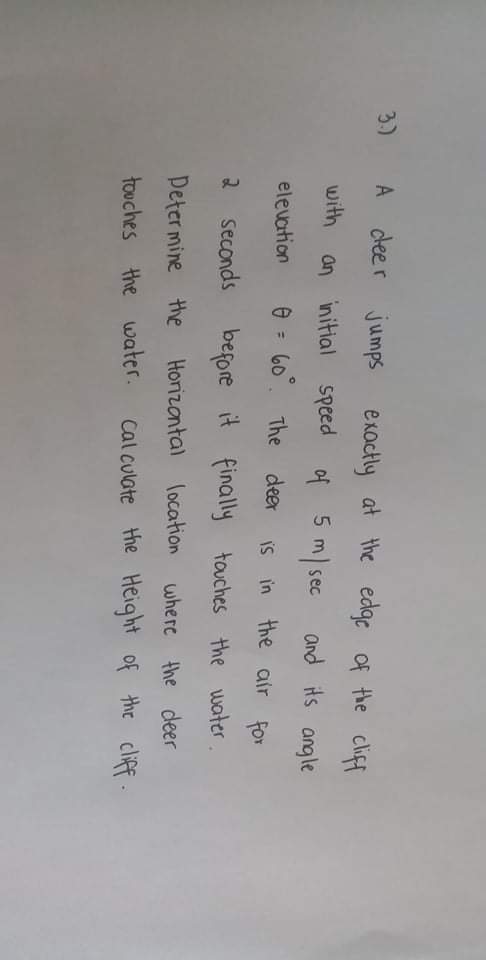 3.) A deer jumps exactly at the edge of the cliff
with an initial speed of 5 m/sec and its angle
elevation θ = 60°. The deer is in the air for
2 seconds before it finally touches the water.
Determine the Horizontal location where the deer
touches the water. Calculate the Height of the cliff.